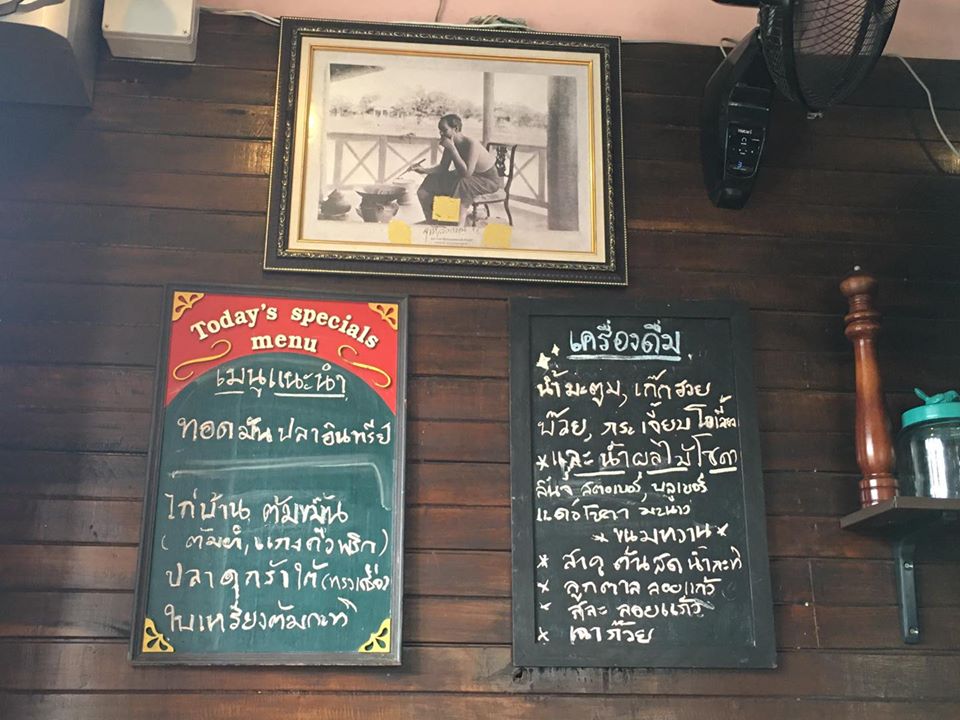 Today's specials
menu
เมนูแนะนำ
ทอดมันปลาอินทรีย์
ไก่บ้าน ต้มขมิ้น
(ต้มยำ, แกงคั่วพริก)
ปลาดุกร้าใต้ (ทรงเครื่อง)
ใบเหรียงต้มกะทิ
เครื่องดื่ม
น้ำมะตูม, เก๊กฮวย
บ๊วย, กระเจี๊ยบ โอเลี้ยง
*และน้ำผลไม้โซดา
ลิ้นจี่ สตอเบอรี่, บลูเบอรี่
แดงโซดา มะนาว
* ขนมหวาน *
* สาคู ต้นสด น้ำกะทิ
* ลูกตาล ลอยแก้ว
* สละ ลอยแก้ว
* เฉาก๊วย